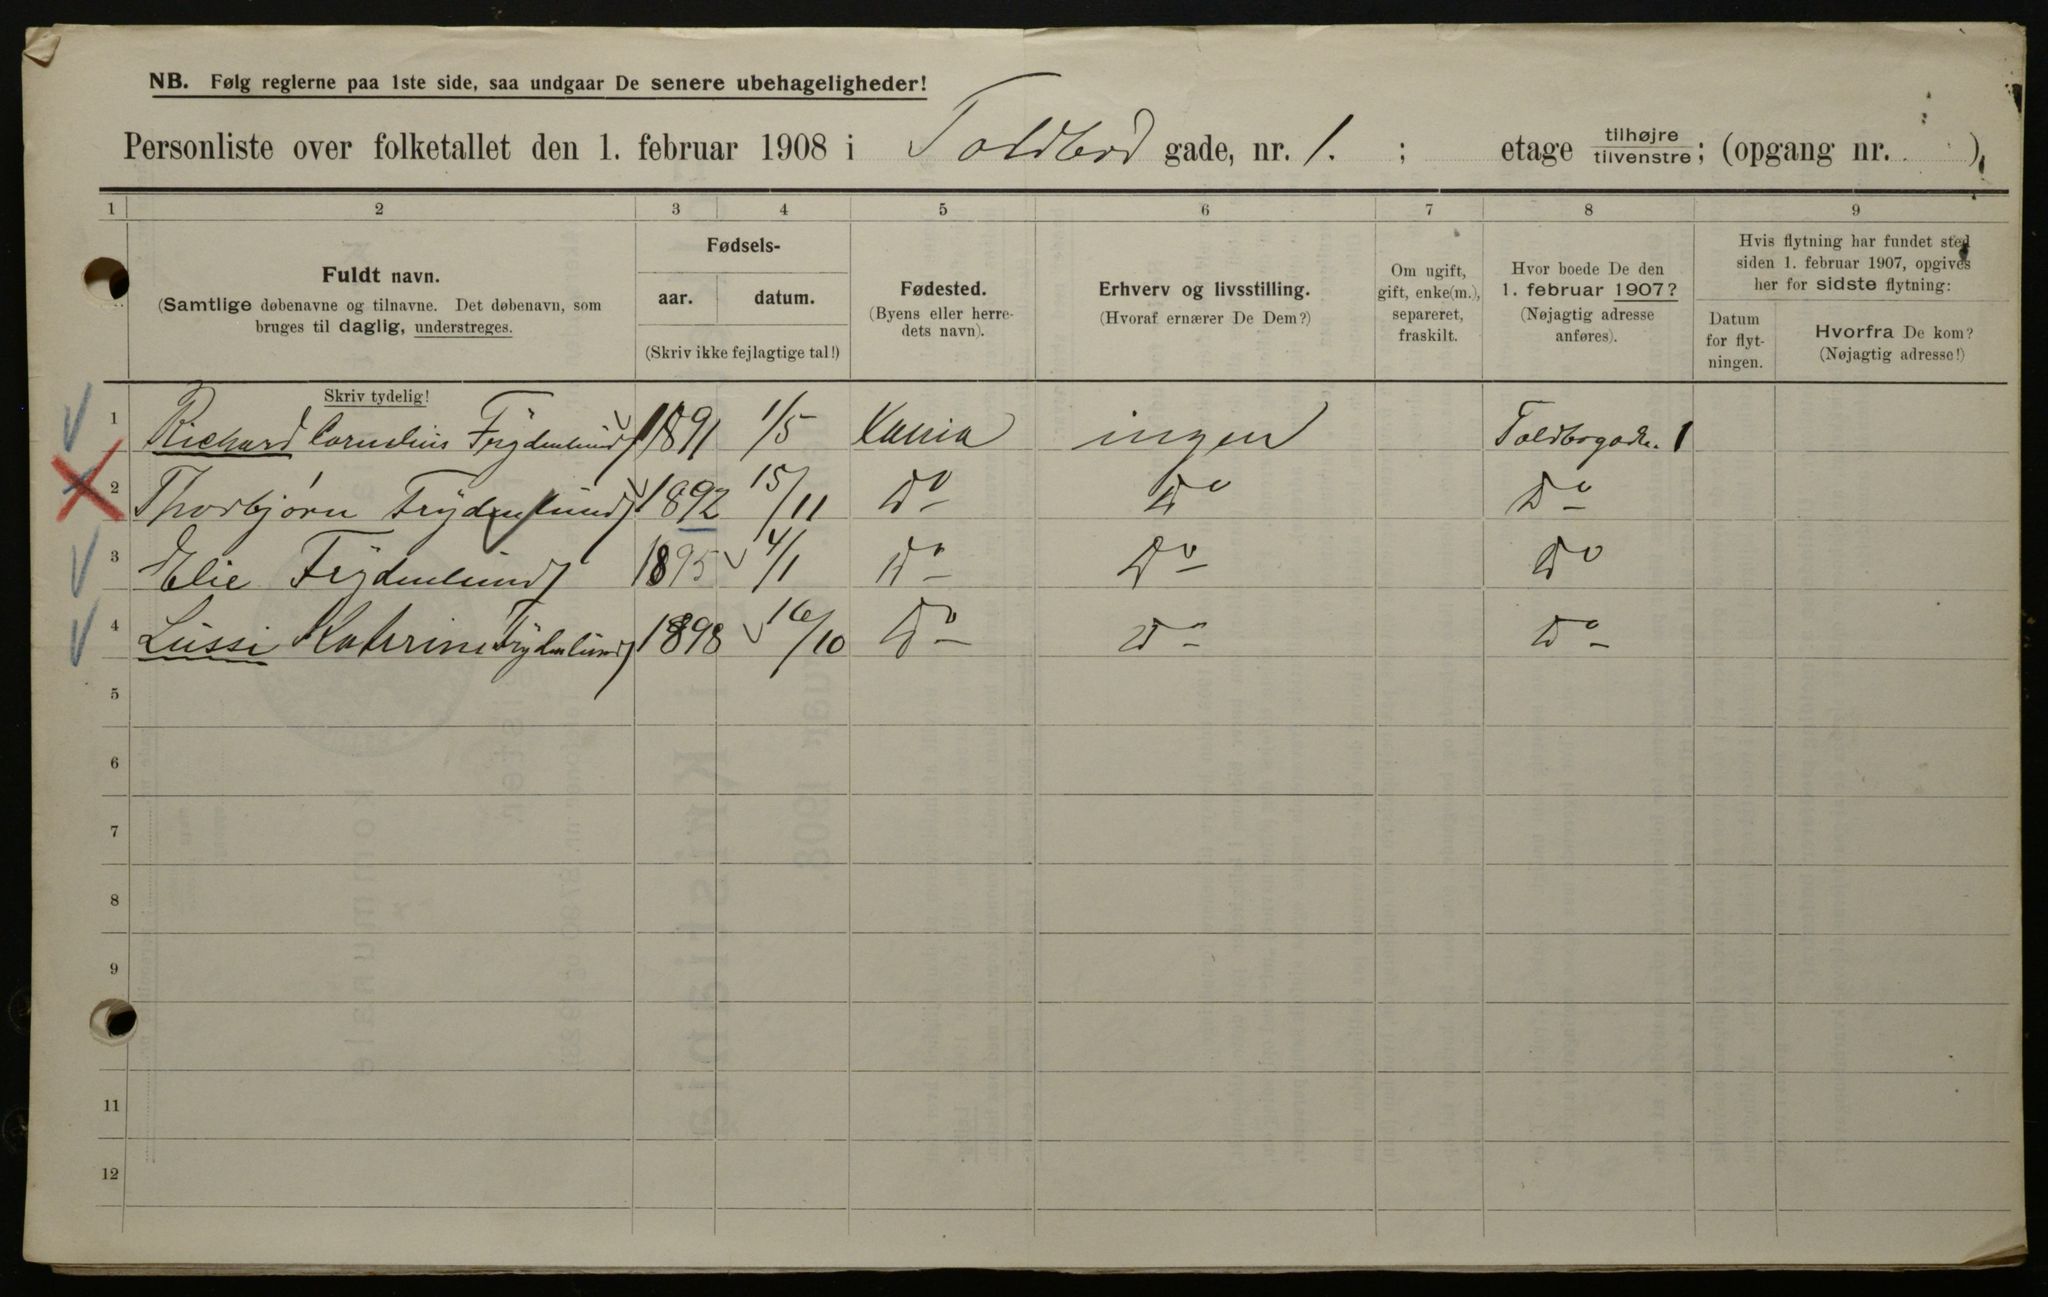 NB. Følg reglerne paa 1ste side, saa undgaar De senere ubehageligheder!
Personliste over folketallet den 1. februar 1908 i Toldbod gade, nr. 1. ; etage tilhøjre/tilvenstre; (opgang nr. ).
1 2 3 4 5 6 7 8 9
Fuldt navn.
(Samtlige døbenavne og tilnavne. Det døbenavn, som
bruges til daglig, understreges.
Skriv tydelig!
Fødsels-
aar. datum.
(Skriv ikke fejlagtige tal!)
Fødested.
(Byens eller herre-
dets navn).
Erhverv og livsstilling.
(Hvoraf ernærer De Dem?)
Om ugift,
gift, enke(m.),
separeret,
fraskilt.
Hvor boede De den
1. februar 1907?
(Nøjagtig adresse
anføres).
Hvis flytning har fundet sted
siden 1. februar 1907, opgives
her for sidste flytning:
Datum
for flyt-
ningen.
Hvorfra De kom?
(Nøjagtig adresse!)
1 Richard Cornelius Frydenlund 1891 1/5 Kania ingen Toldbogade. 1
2 Thorbjørn Frydenlund 1892 15/11 Do Do Do
3 Elie Frydenlund 1895 4/1 Do Do Do
4 Lussi Katrine Frydenlund 1898 16/10 Do Do Do
5
6
7
8
9
11
12